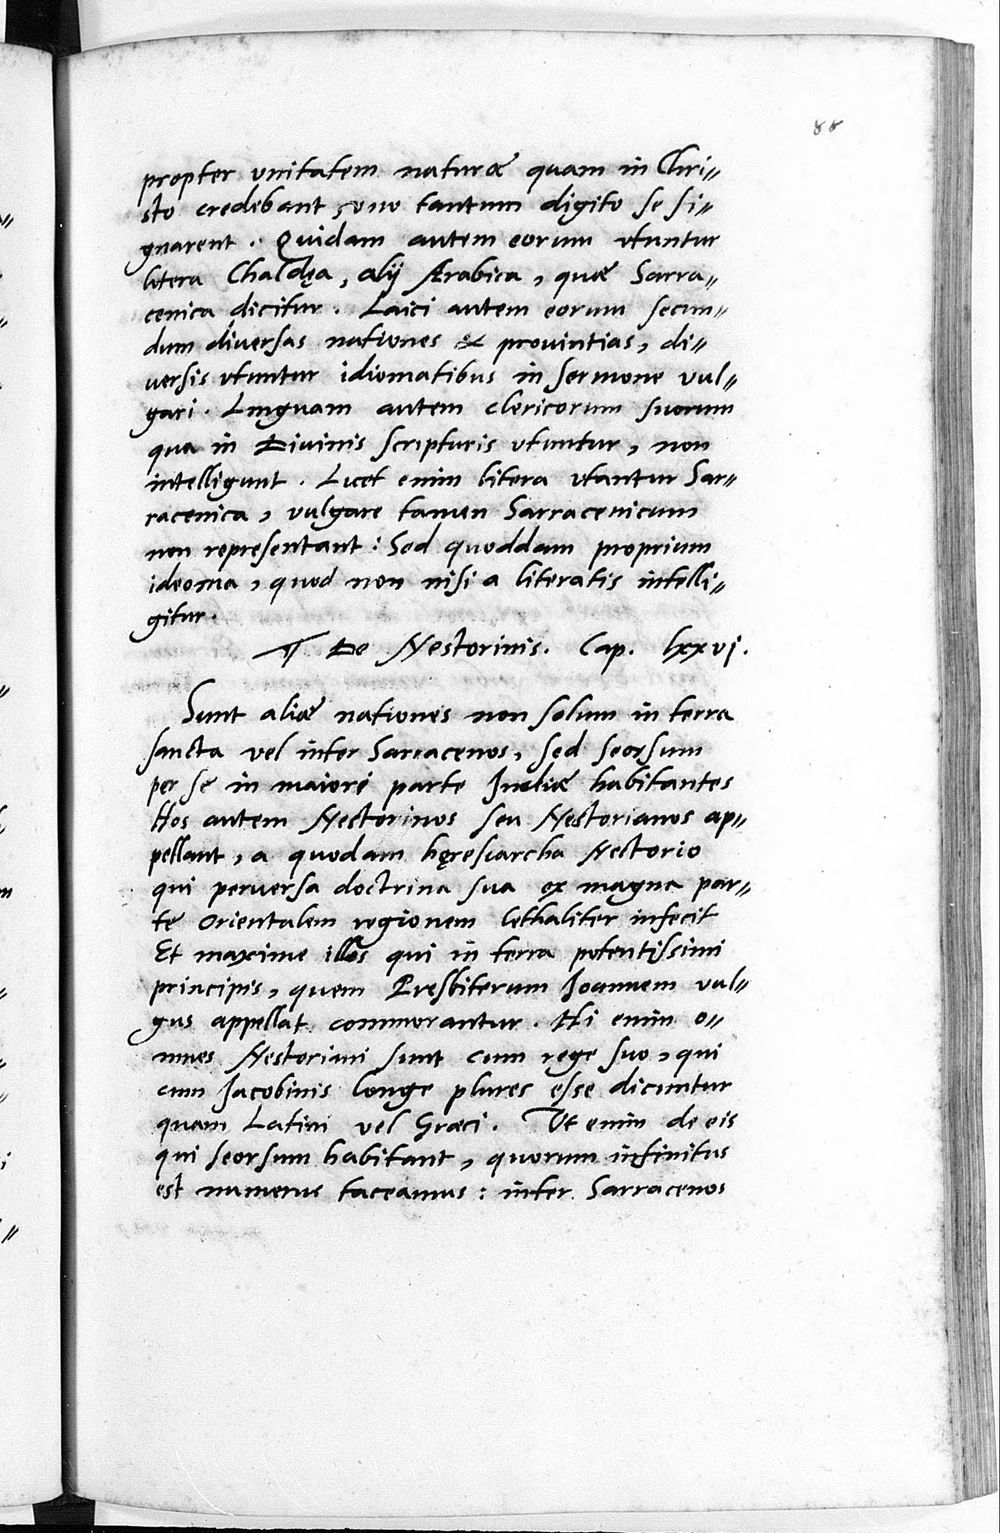 88
propter vnitatem naturæ quam in Chri〃
sto credebant, vno tantum digito se si〃
gnarent. Quidam autem eorum vtuntur
litera Chaldęa, alij Ærabica, quæ Sarra〃
cenica dicitur. Laici autem eorum secun〃
dum diversas nationes & prouintias, di〃
uersis vtuntur idiomatibus in sermone vul〃
gari. Linguam autem clericorum suorum
qua in Diuinis scripturis vtuntur, non
intelligunt. Licet enim litera vtantur Sar〃
racenica, vulgare tamen Sarracenicum
non representant: Sed quoddam proprium
ideoma, quod non nisi a literatis intelli〃
gitur.
¶ De Nestorinis. Cap. lxxvj.
Sunt aliæ nationes non solum in terra
sancta vel inter Sarracenos, sed seorsum
per se in maiori parte Indiæ habitantes
Hos autem Nestorinos seu Nestorianos ap〃
pellant, a quodam hęresiarcha Nestorio
qui peruersa doctrina sua ex magna par〃
te Orientalem regionem lethaliter infecit
Et maxime illos qui in terra potentissimi
principis, quem Presbiterum Joannem vul〃
gus appellat, commorantur. Hi enim o〃
mnes Nestoriani sunt cum rege suo, qui
cum Jacobinis longe plures esse dicuntur
quam Latini vel Græci. Vt enim de eis
qui seorsum habitant, quorum infinitus
est numerus taceamus: inter Sarracenos